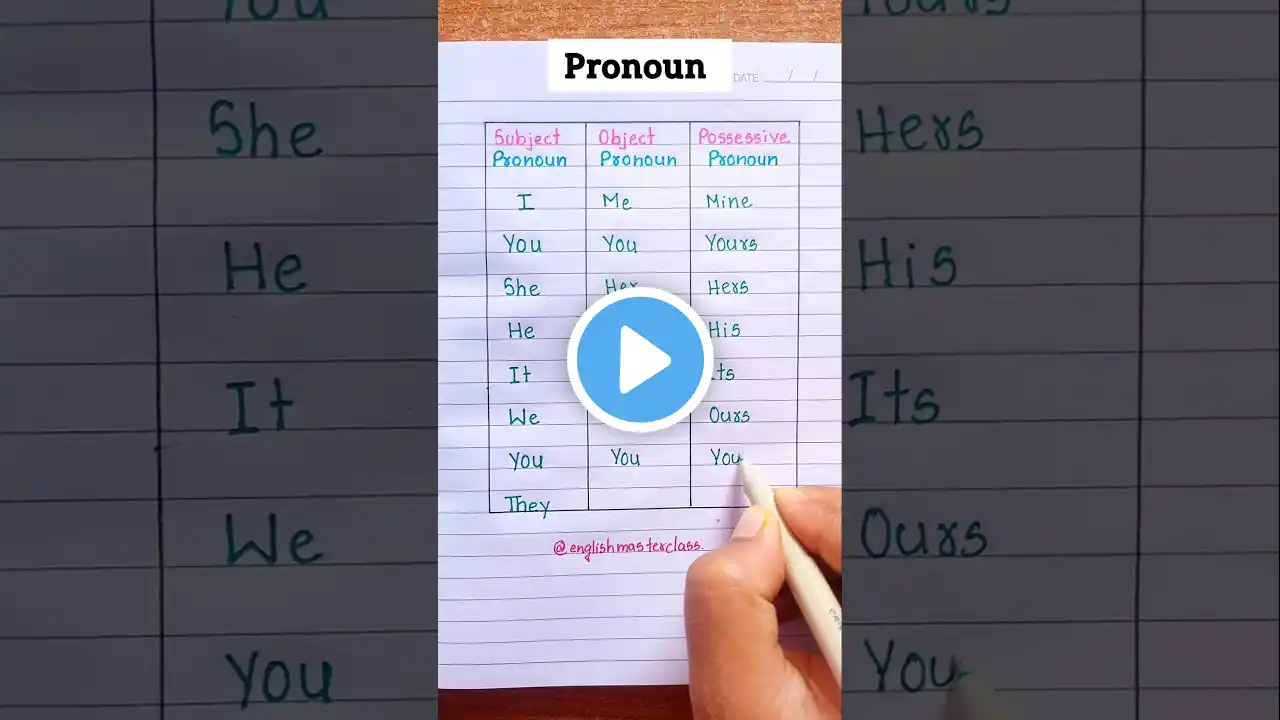 Pronoun
DATE / /
Subject Pronoun Object Pronoun Possessive Pronoun
I Me Mine
You You Yours
She Her Hers
He His
It Its
We Ours
You You You
They
@englishmasterclass.
You Yours
She Hers
He His
It Its
We Ours
You You